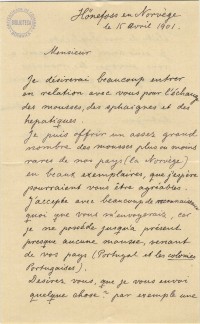 Hönefoss en Norvège
le 15 Avril 1901.
Monsieur
Je désirerai beaucoup entrer
en relation avec vous pour l'échange
des mousses, des sphaignes et des
hepatiques.
Je puis offrir un assez grand
nombre des mousses plus ou moins
rares de nos pays (en Norvège)
en beaux exemplaires, que j'espère
pourraient vous être agréables.
J'accepte avec beaucoup de reconnaissance
quoi que vous m'envoyerais, car
je ne possède jusqu'a présent
presque aucune mousse, venant
de vos pays (Portugal et les colonies
Portugaises).
Desirez vous, que je vous envoi
quelque chose - par exemple une